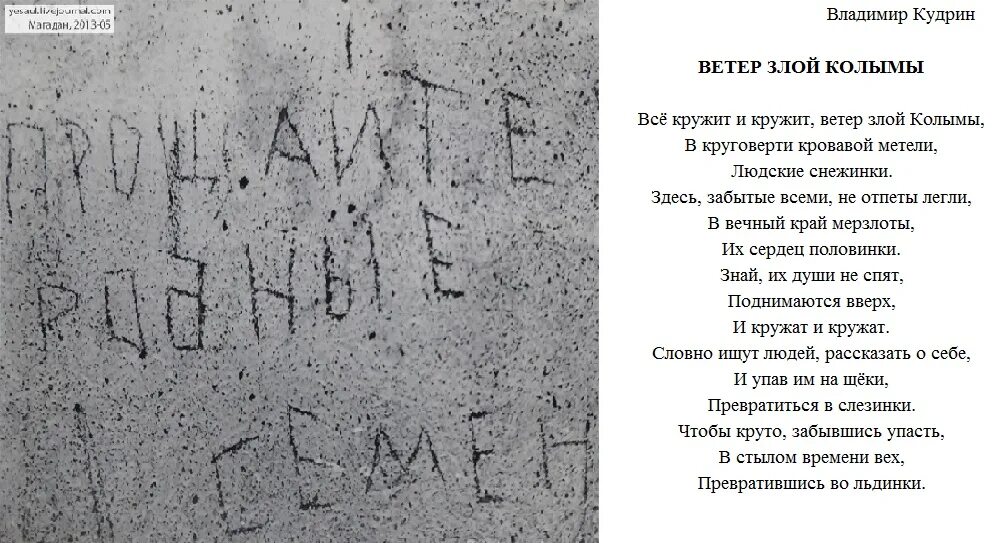 yesaul.livejournal.com
Магадан, 2013-05
ПРОЩАЙТЕ
РОДНЫЕ
СЕМЕН
Владимир Кудрин
ВЕТЕР ЗЛОЙ КОЛЫМЫ
Всё кружит и кружит, ветер злой Колымы,
В круговерти кровавой метели,
Людские снежинки.
Здесь, забытые всеми, не отпеты легли,
В вечный край мерзлоты,
Их сердец половинки.
Знай, их души не спят,
Поднимаются вверх,
И кружат и кружат.
Словно ищут людей, рассказать о себе,
И упав им на щёки,
Превратиться в слезинки.
Чтобы круто, забывшись упасть,
В стылом времени вех,
Превратившись во льдинки.